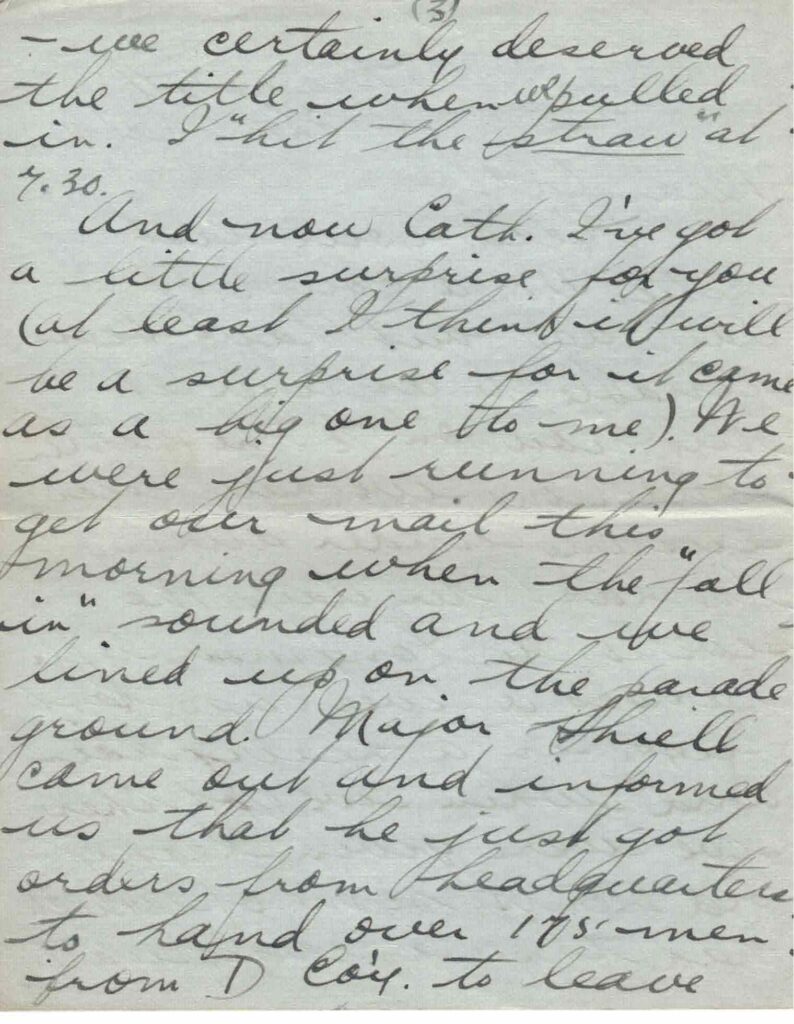 (3)
- we certainly deserved
the title when we pulled
in. I "hit the straw" at
7.30.
And now Cath. I've got
a little surprise for you
(at least I think it will
be a surprise for it came
as a big one to me). We
were just running to
get our mail this
morning when the "fall
in" sounded and we
lined up on the parade
ground. Major Shiell
came out and informed
us that he just got
orders from headquarters
to hand over 175 men
from D Co'y. to leave